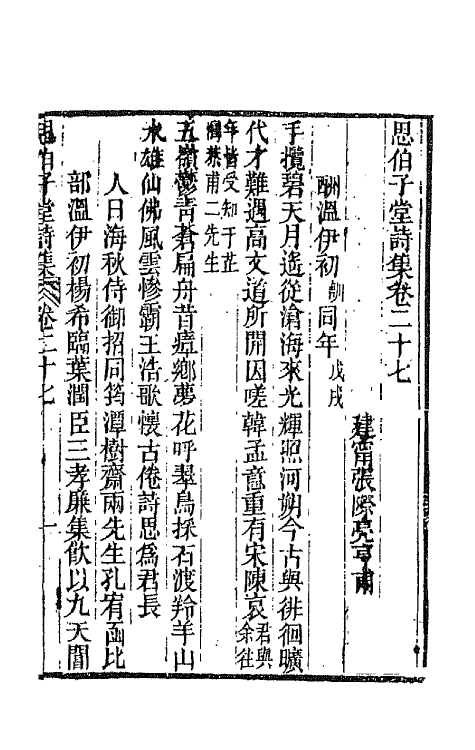 思伯子堂詩集卷二十七
建甯張際亮亨甫
酬溫伊初訓同年戊戌
手攬碧天月遙從滄海來光輝照河朔今古與徘徊曠
代才難遇高文道所開因嗟韓孟意重有宋陳哀君與余往
年皆受知于芷灣恭甫二先生
五嶺鬱青蒼扁舟昔瘴鄉夢花呼翠鳥採石渡羚羊山
水雄仙佛風雲慘霸王浩歌懷古倦詩思為君長
人日海秋侍御招同筠潭樹齋兩先生孔宥函比
部溫伊初楊希臨葉潤臣三孝廉集飲以九天閶
思伯子堂詩集 卷二十七 一